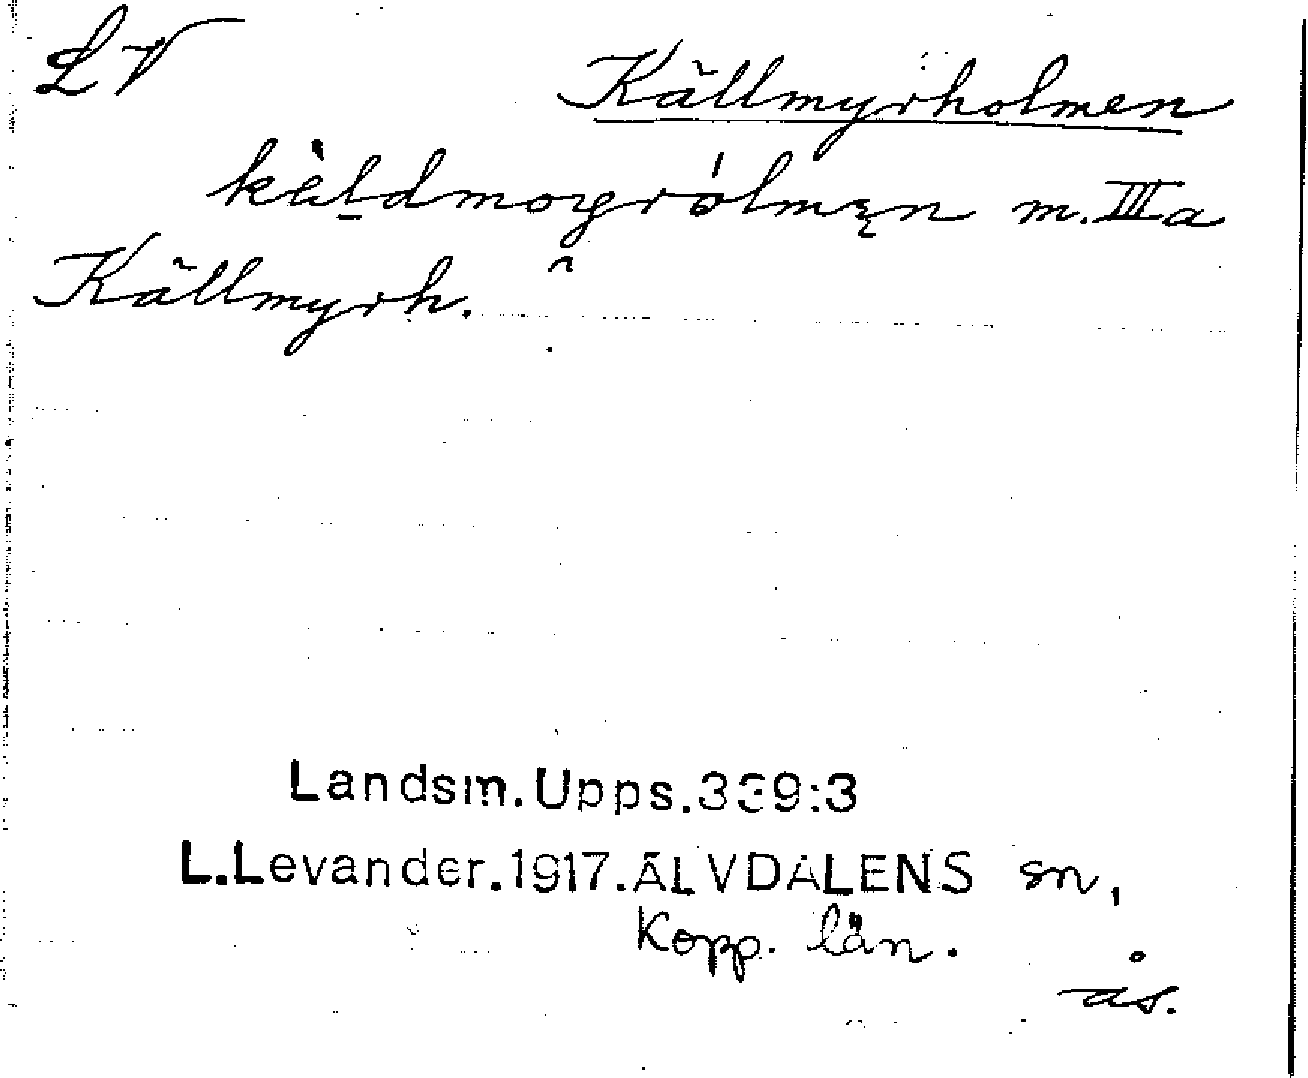 LV
Källmyrholmen
kèldmoyrólmęn m. III a
Källmyrh.
Landsm.Upps.339:3
L.Levander.1917.ÄLVDALENS sn,
Kopp. län.
ås.